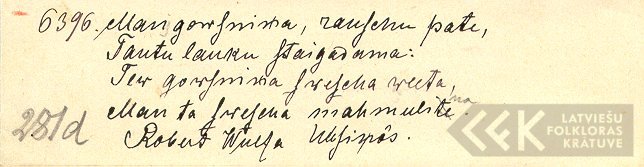 6396. Man gowsniņa, rauschu pate,
Tautu lauku staigadama:
Tew gowsniņa swescha weeta,
Man ta swescha mahmuliņa.
251d Robert Wulfa Uhsiņôs.
LATVIEŠU
FOLKLORAS
KRĀTUVE